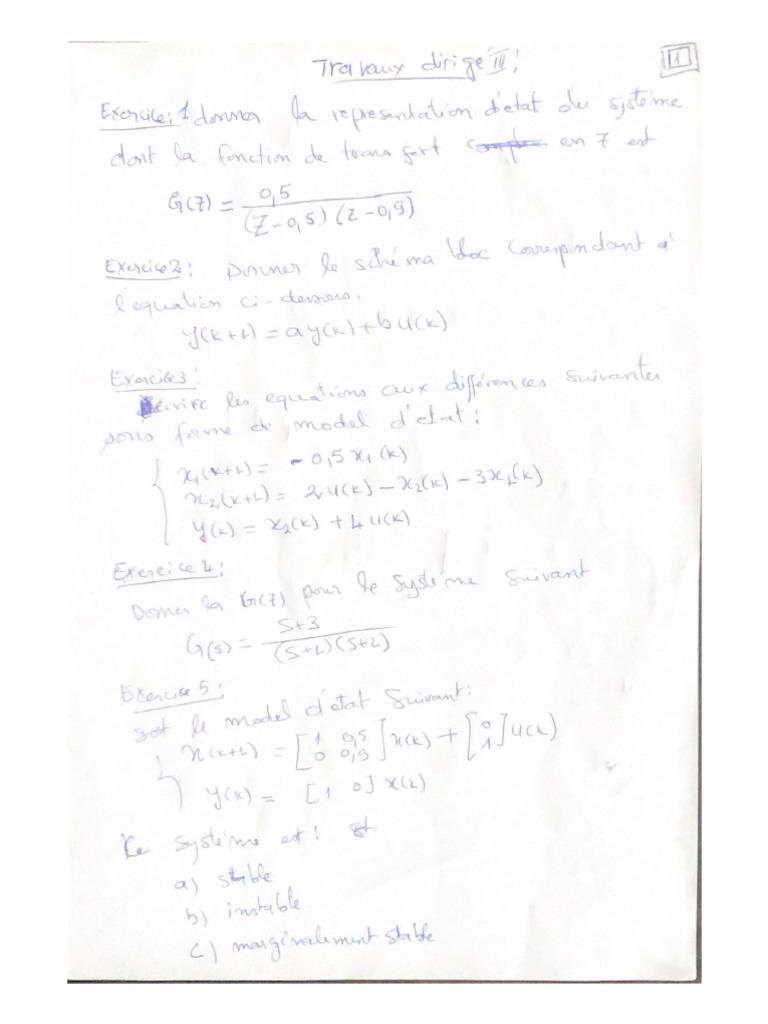 Travaux dirigé III:
1
Exercice: 1 donner la representation d'état du système
dont la fonction de transfert en Z est
G(Z) = 0,5 / (Z-0,5)(Z-0,9)
Exercice 2: Donner le schéma bloc correspondant à
l'equation ci-dessous.
y(k+1) = a y(k) + b u(k)
Exercice 3:
Ecrire les equations aux différences suivantes
sous forme de model d'état:
x₁(k+1) = -0,5 x₁(k)
x₂(k+1) = 2u(k) - x₂(k) - 3x₁(k)
y(k) = x₂(k) + 4u(k)
Exercice 4:
Donner la G(Z) pour le système suivant
G(s) = s+3 / (s+1)(s+2)
Exercice 5:
Soit le model d'état suivant:
x(k+1) = [1 0,5; 0 0,9] x(k) + [0; 1] u(k)
y(k) = [1 0] x(k)
le système est:
a) stable
b) instable
c) marginalement stable